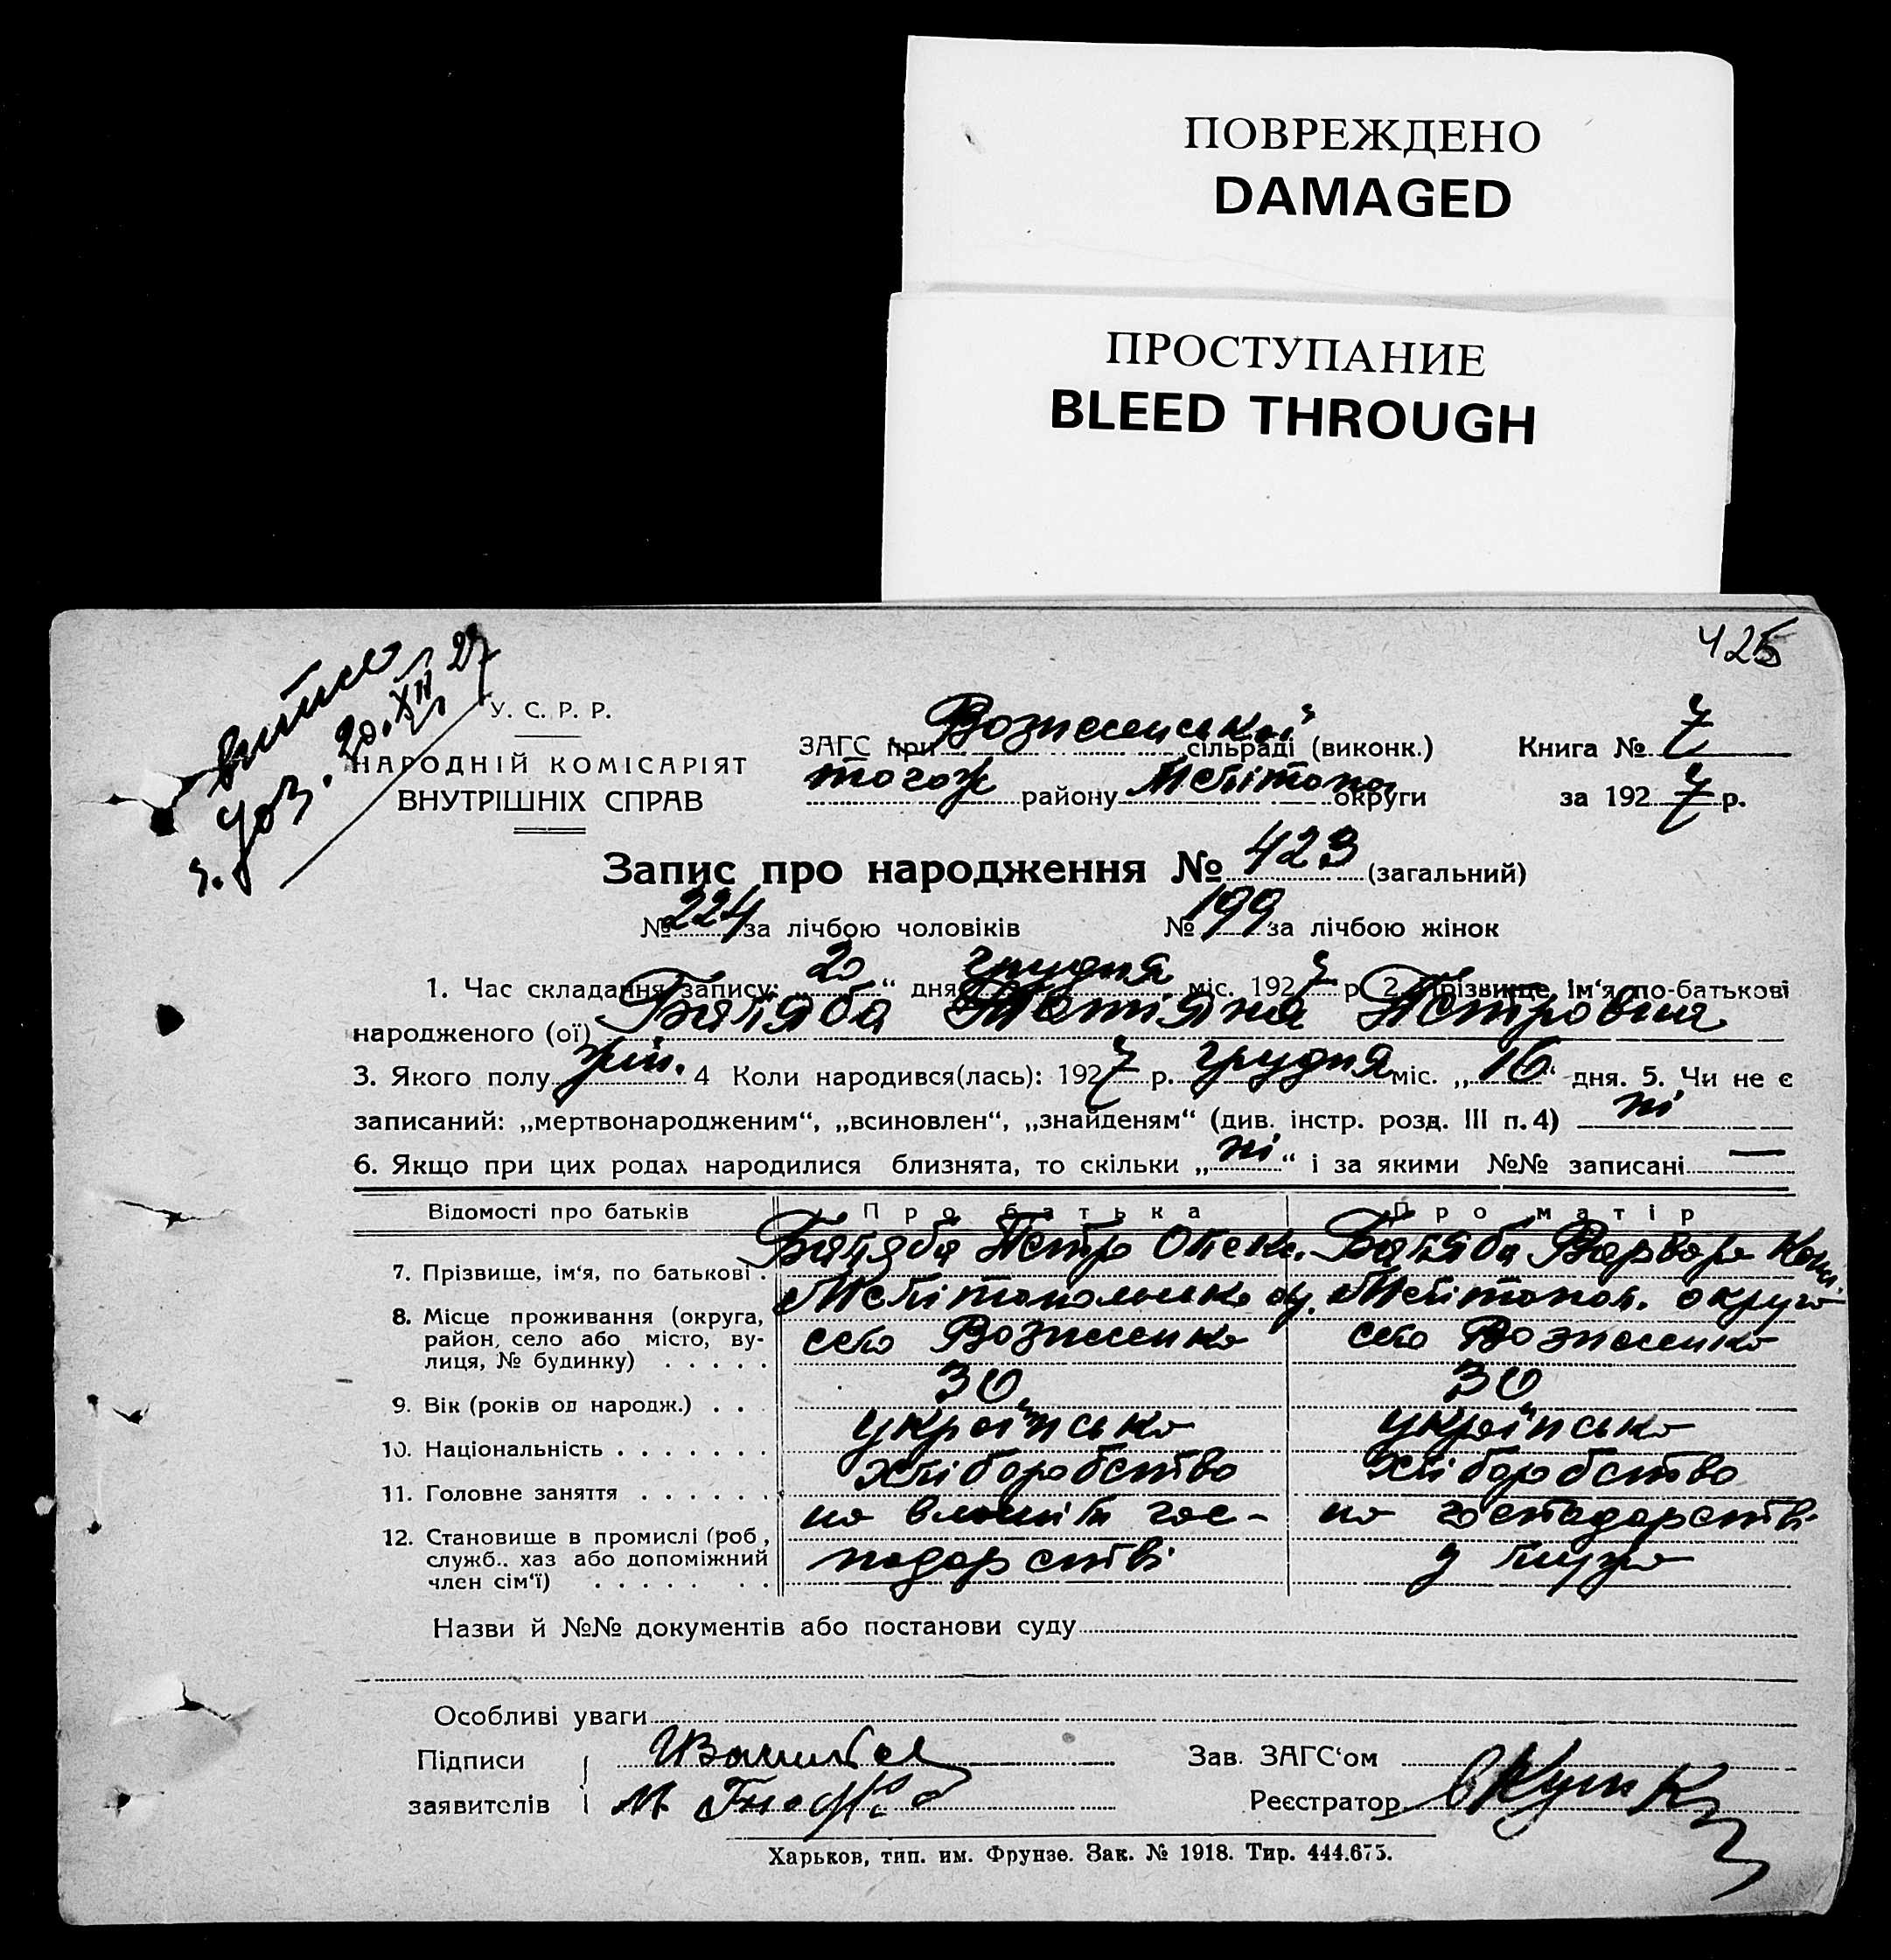 ПОВРЕЖДЕНО
DAMAGED
ПРОСТУПАНИЕ
BLEED THROUGH
425
20.XII 27
У. С. Р. Р.
НАРОДНІЙ КОМІСАРІЯТ
ВНУТРІШНІХ СПРАВ
ЗАГС при Вознесенській сільраді (виконк.) Книга № 7
тогож району Меліտопол округи за 1927 р.
Запис про народження № 423 (загальний)
№ 224 за лічбою чоловіків № 199 за лічбою жінок
1. Час складання запису: „20“ дня грудня міс. 1927 р. 2. Прізвище, ім‘я, по-батькові
народженого (ої) Баляба Тетяна Петровна
3. Якого полу жін. 4 Коли народився(лась): 1927 р. грудня міс. „16“ дня. 5. Чи не є
записаний: „мертвонародженим“, „всиновлен“, „знайденям“ (див. інстр. розд. III п. 4) ні
6. Якщо при цих родах народилися близнята, то скільки „ні“ і за якими №№ записані —
Відомості про батьків Про батька Про матір
7. Прізвище, ім‘я, по батькові . Баляба Петро Олекс. Баляба Варвара
8. Місце проживання (округа, Мелітопольська ок. Мелітопол. округа
район, село або місто, ву- село Вознесенка село Вознесенка
лиця, № будинку) . . . . .
9. Вік (років од народж.) . . . 30 30
10. Національність . . . . . . . українська українська
11. Головне заняття . . . . . . хліборобство хліборобство
12. Становище в промислі (роб., на власнім гос- на господарстві
служб.. хаз або допоміжний подарстві
член сім‘ї) . . . . . . . .
Назви й №№ документів або постанови суду
Особливі уваги
Підписи Зав. ЗАГС‘ом
заявителів Реєстратор
Харьков, тип. им. Фрунзе. Зак. № 1918. Тир. 444.675.